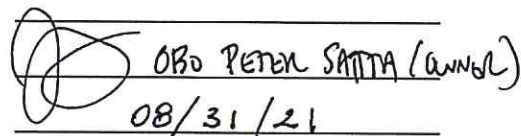 OBO PETER SAITTA (OWNER)
08/31/21